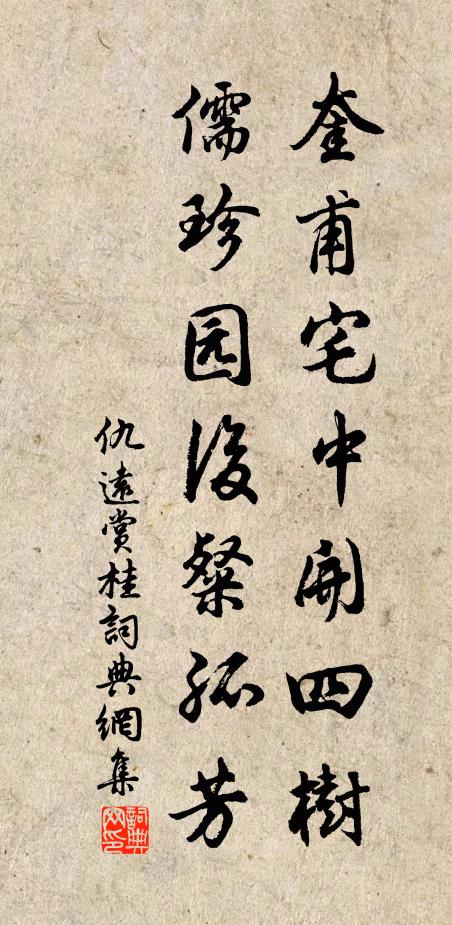 奎甫宅中開四樹
儒珍园後粲孤芳
仇遠賞桂詞典網集
詞典网印